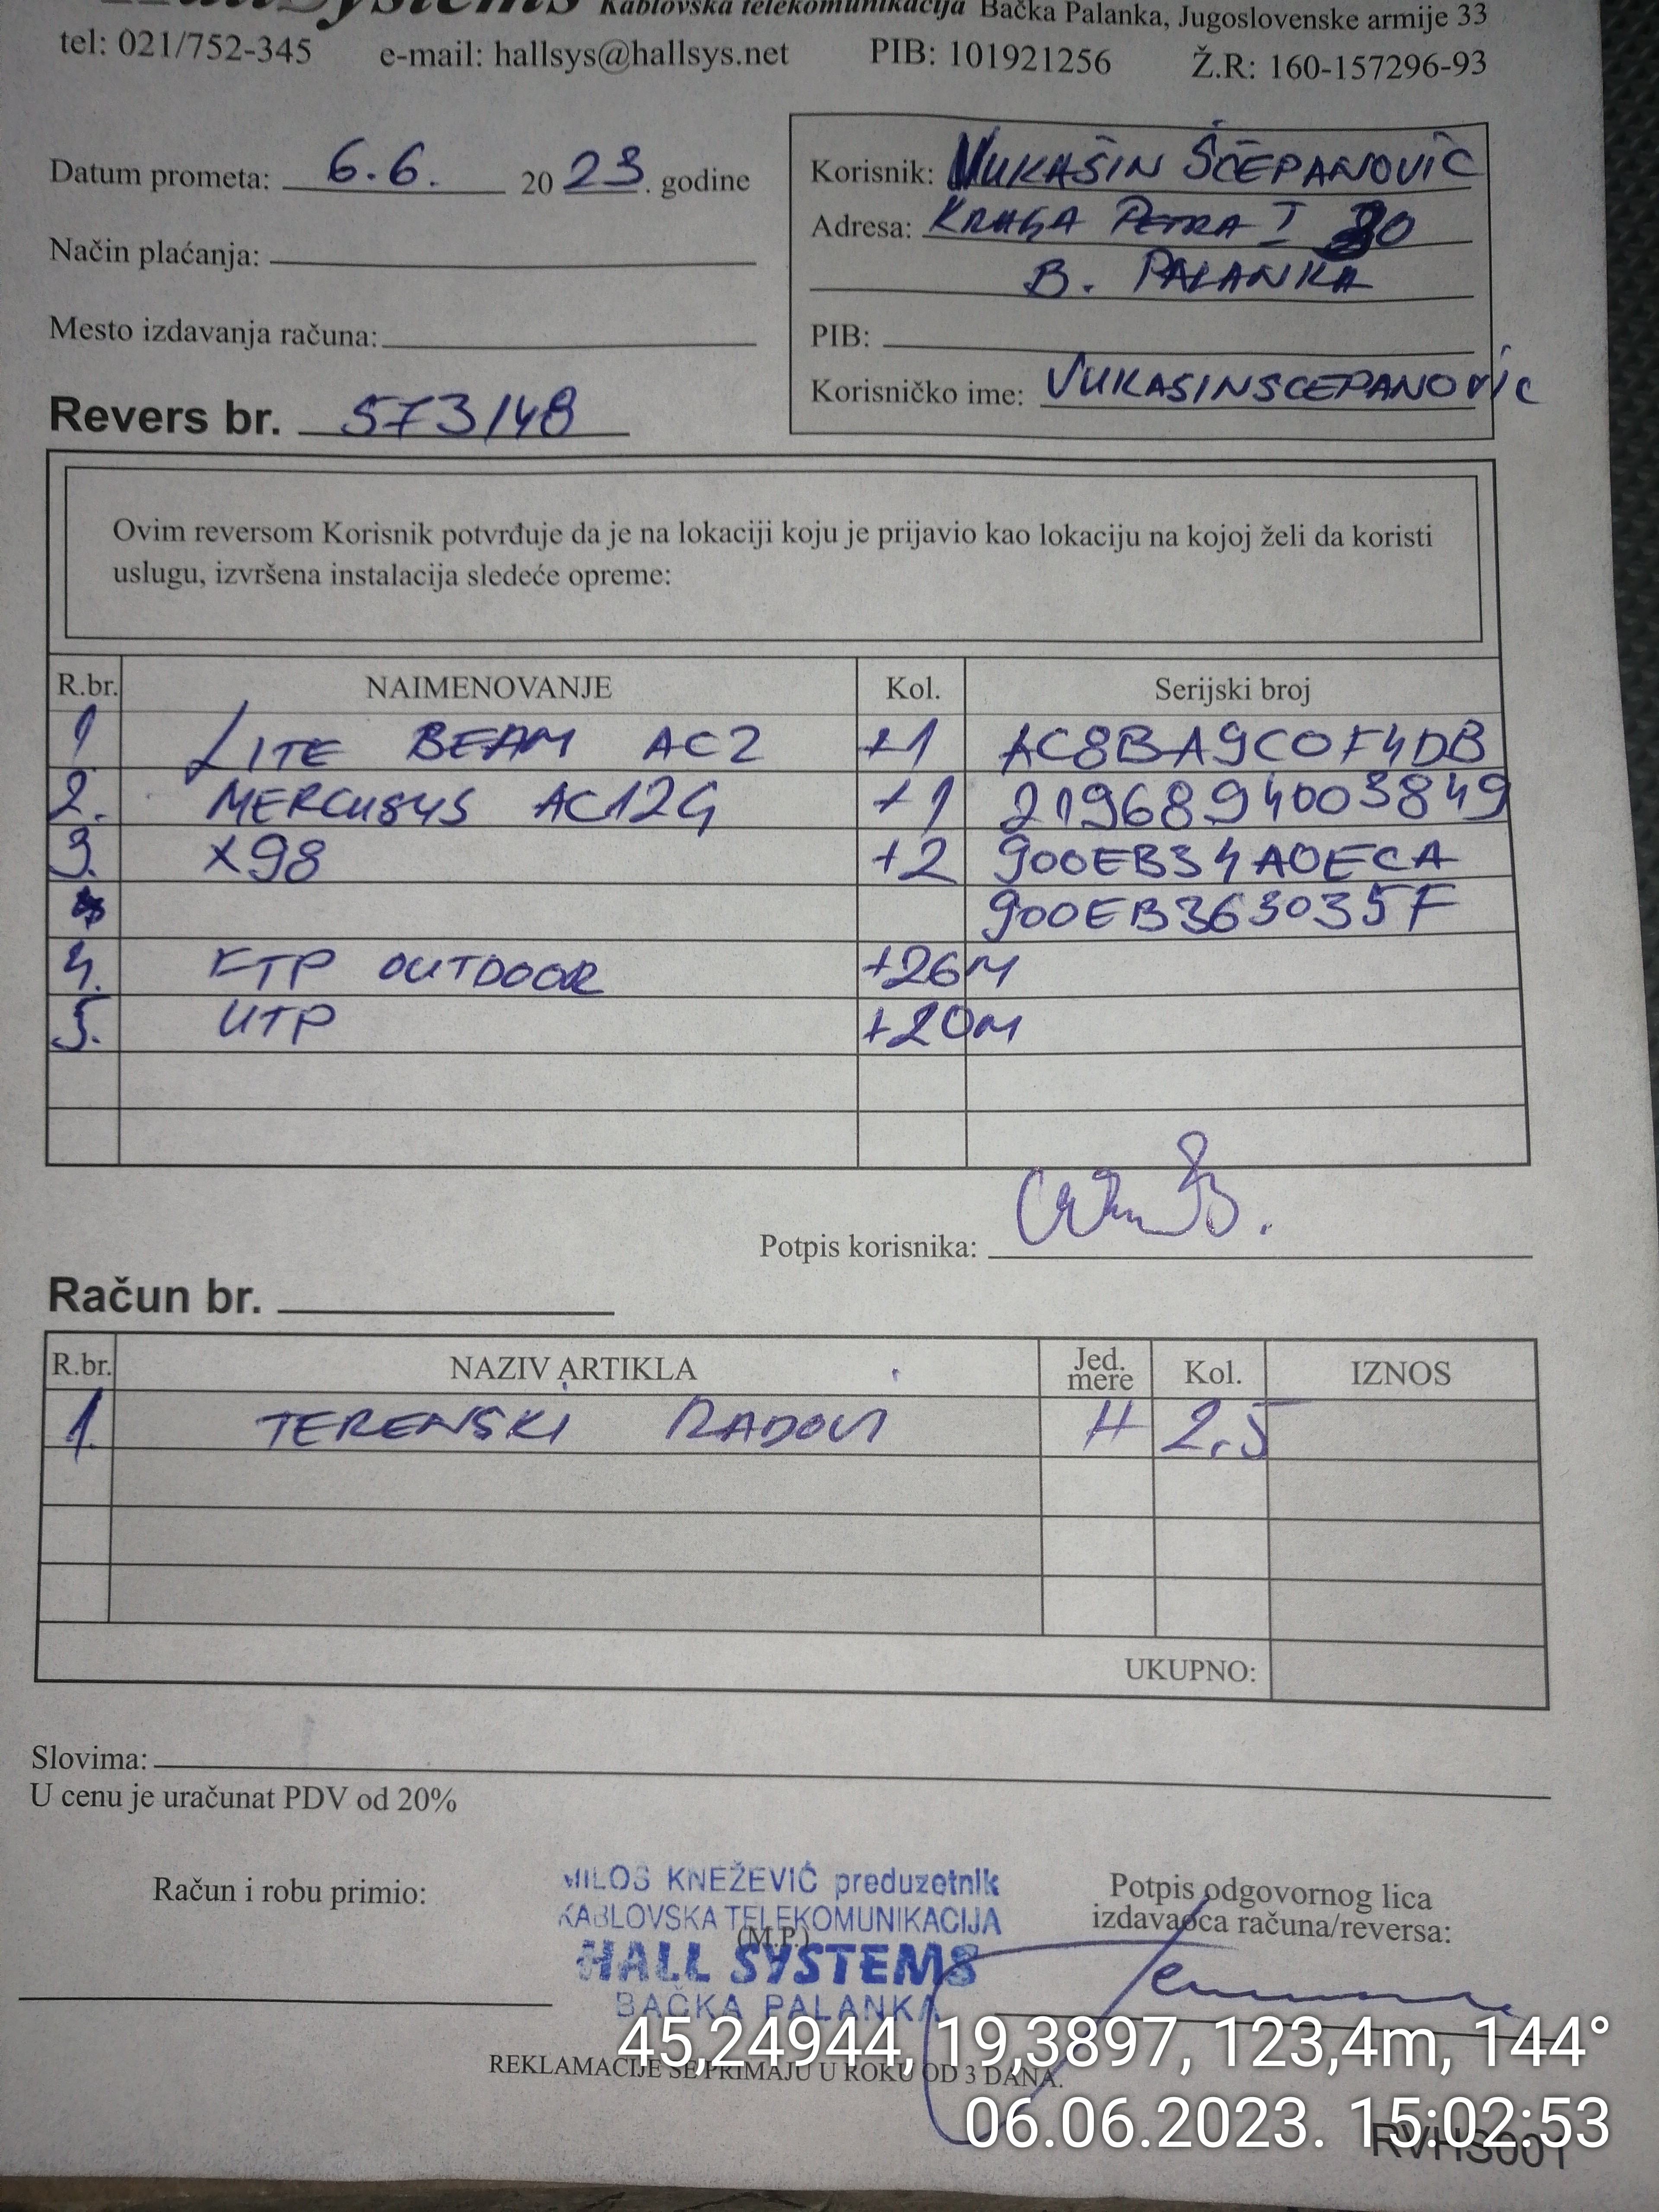 HallSystems Kablovska telekomunikacija Bačka Palanka, Jugoslovenske armije 33
tel: 021/752-345 e-mail: hallsys@hallsys.net PIB: 101921256 Ž.R: 160-157296-93
Datum prometa: 6.6. 2023. godine
Način plaćanja:
Mesto izdavanja računa:
Korisnik: VUKAŠIN ŠĆEPANOVIĆ
Adresa: KRALJA PETRA I 30
B. PALANKA
PIB:
Korisničko ime: VUKASINSCEPANOVIC
Revers br. 573/48
Ovim reversom Korisnik potvrđuje da je na lokaciji koju je prijavio kao lokaciju na kojoj želi da koristi
uslugu, izvršena instalacija sledeće opreme:
R.br. NAIMENOVANJE Kol. Serijski broj
1 LITE BEAM AC2 +1 AC8BA9C0F4DB
2. MERCUSYS AC12G +1 2196894003849
3. X98 +2 900EB34A0ECA
900EB363035F
4. FTP OUTDOOR +26M
5. UTP +20M
Potpis korisnika:
Račun br.
R.br. NAZIV ARTIKLA Jed. mere Kol. IZNOS
1. TERENSKI RADOVI H 2,5
UKUPNO:
Slovima:
U cenu je uračunat PDV od 20%
Račun i robu primio:
MILOŠ KNEŽEVIĆ preduzetnik
KABLOVSKA TELEKOMUNIKACIJA
(M.P.)
HALL SYSTEMS
BAČKA PALANKA
Potpis odgovornog lica
izdavaoca računa/reversa:
45,24944, 19,3897, 123,4m, 144°
REKLAMACIJE SE PRIMAJU U ROKU OD 3 DANA.
06.06.2023. 15:02:53
RVHS001